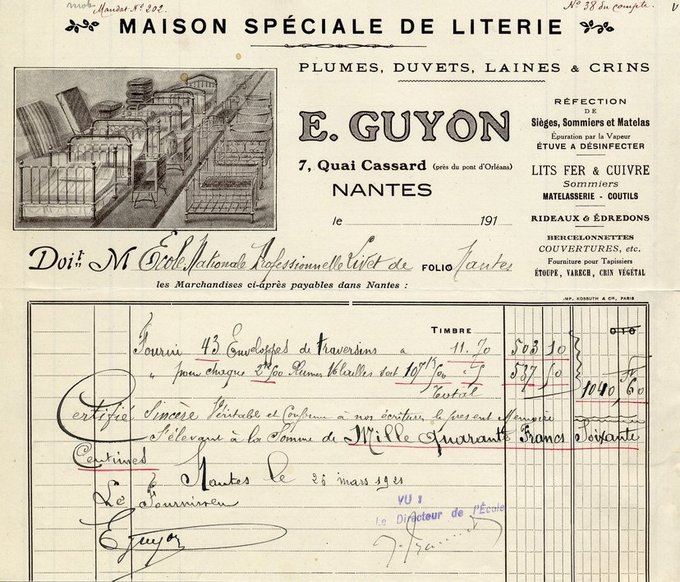 Mandat Nº 202.
Nº 38 du compte.
MAISON SPÉCIALE DE LITERIE
PLUMES, DUVETS, LAINES & CRINS
E. GUYON
7, Quai Cassard (près du pont d'Orléans)
NANTES
le 191
RÉFECTION
DE
Sièges, Sommiers et Matelas
Épuration par la Vapeur
ÉTUVE A DÉSINFECTER
LITS FER & CUIVRE
Sommiers
MATELASSERIE - COUTILS
RIDEAUX & ÉDREDONS
BERCELONNETTES
COUVERTURES, etc.
Fourniture pour Tapissiers
ÉTOUPE, VARECH, CRIN VÉGÉTAL
Doit M École Nationale Professionnelle Livet de FOLIO Nantes
les Marchandises ci-après payables dans Nantes :
IMP. KOSSUTH & Cie, PARIS
TIMBRE
Fourni 43 Enveloppes de traversins a 11.70 503 10
" pour chaque 2k500 Plumes Volailles soit 107k500 5 537 50
Total 1040,60
Certifié Sincère Véritable et Conforme a nos écritures le présent Mémoire
S'élevant à la Somme de Mille Quarante Francs Soixante
Centimes
à Nantes le 26 mars 1921
Le Fournisseur
E Guyon
VU :
Le Directeur de l'École